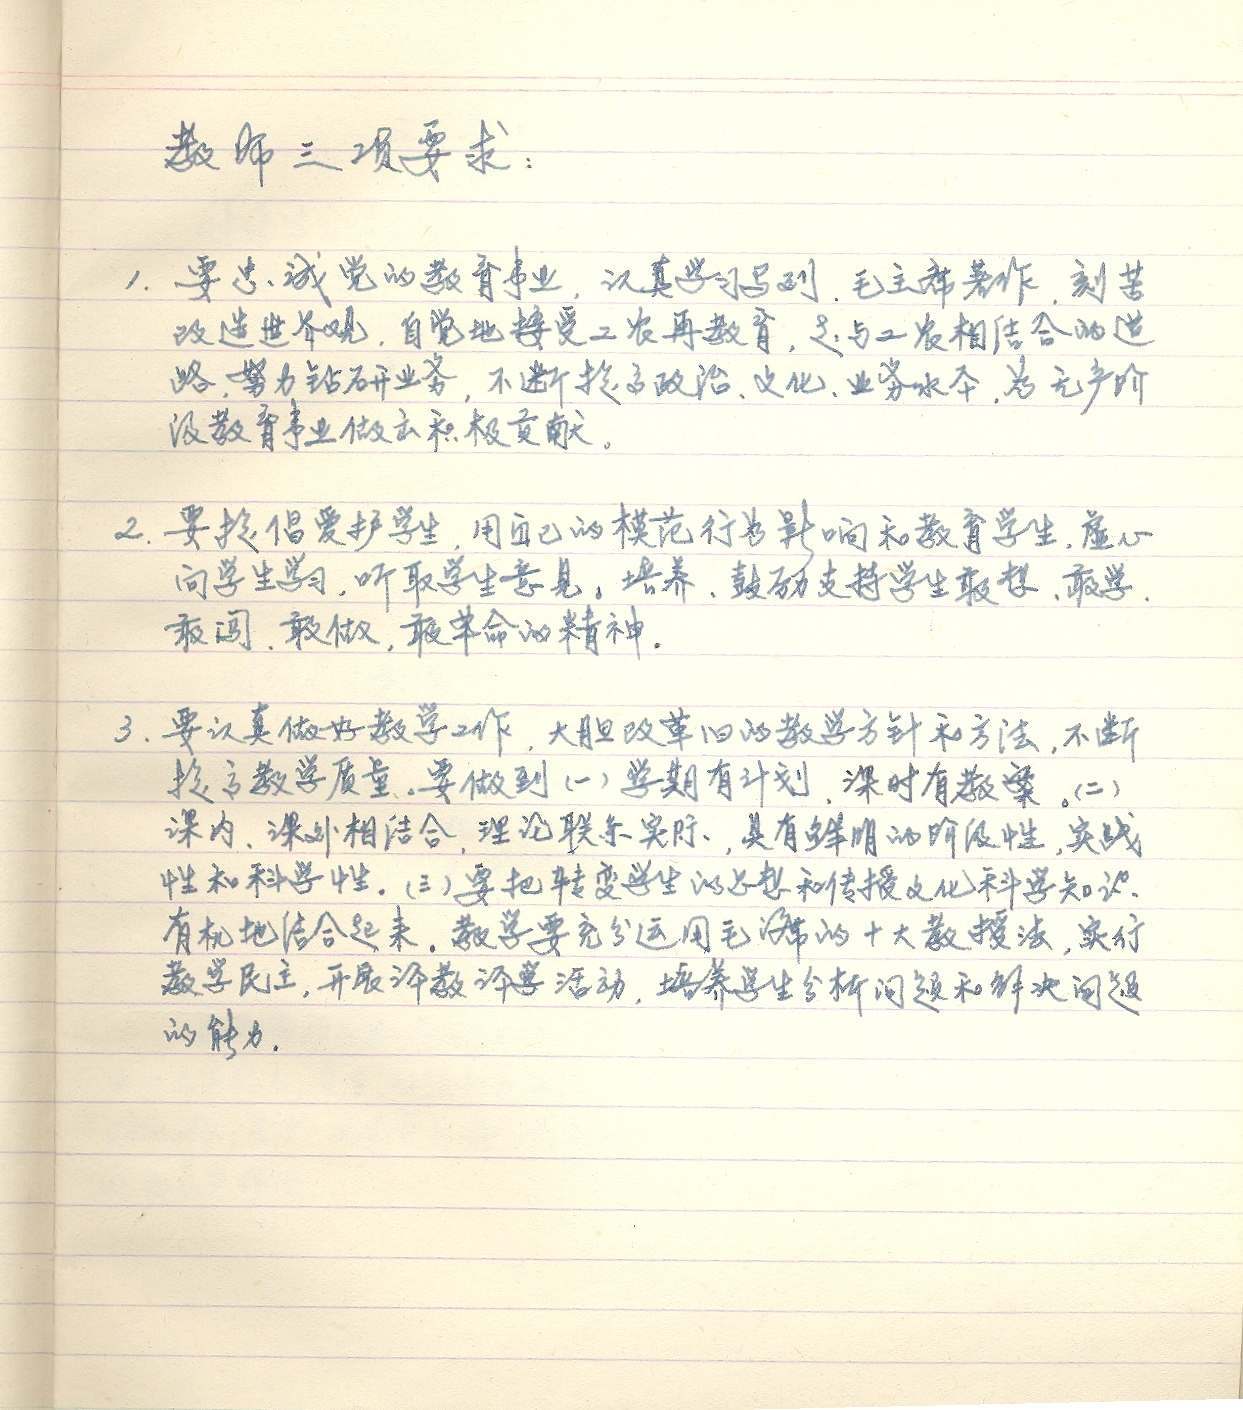 教师三项要求：
1. 要忠诚党的教育事业，认真学习马列、毛主席著作，刻苦
改造世界观，自觉地接受工农再教育，走与工农相结合的道
路，努力钻研业务，不断提高政治、文化、业务水平，为无产阶
级教育事业做出积极贡献。
2. 要提倡爱护学生，用自己的模范行为影响和教育学生，虚心
向学生学习，听取学生意见。培养、鼓励支持学生敢想、敢学、
敢闯、敢做，敢革命的精神。
3. 要认真做好教学工作，大胆改革旧的教学方针和方法，不断
提高教学质量。要做到(一)学期有计划、课时有教案。(二)
课内、课外相结合，理论联系实际、具有鲜明的阶级性，实践
性和科学性。(三)要把转变学生的思想和传授文化科学知识、
有机地结合起来。教学要充分运用毛主席的十大教授法，实行
教学民主，开展评教评学活动，培养学生分析问题和解决问题
的能力.